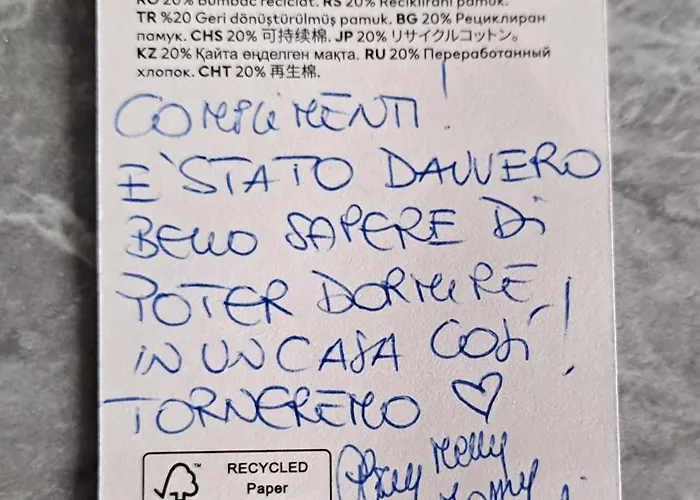 RO 20% Bumbac reciclat. RS 20% Reciklirani pamuk.
TR %20 Geri dönüştürülmüş pamuk. BG 20% Рециклиран
памук. CHS 20% 可持续棉. JP 20% リサイクルコットン。
KZ 20% Қайта өңделген мақта. RU 20% Переработанный
хлопок. CHT 20% 再生棉.
COMPLIMENTI!
E'STATO DAVVERO
BELLO SAPERE Di
POTER DORMIRE
iN UN CASA COSÌ!
TORNEREMO
RECYCLED
Paper